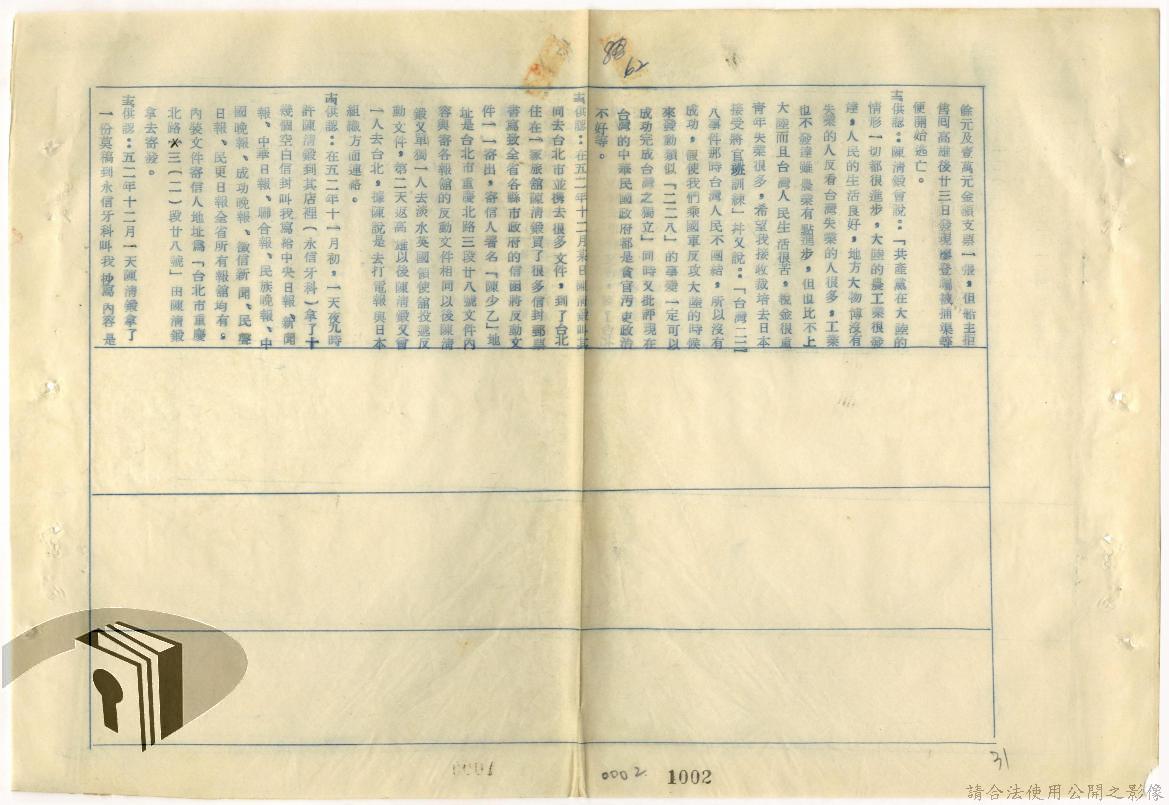 餘元及壹萬元金額支票一張，但船主拒
僱回高雄後廿三日發現廖登䮾被捕渠等
便開始逃亡。
供認：陳清鍛會說：「共產黨在大陸的
情形一切都很進步，大陸的農工業很發
達，人民的生活良好，地方大物博沒有
失業的人反看台灣失業的人很多，工業
也不發達雖農業有點進步，但也比不上
大陸而且台灣人民生活很苦，稅金很重
青年失業很多，希望我接收裁培去日本
接受將官班訓練」幷又說：「台灣二二
八事件那時台灣人民不團結，所以沒有
成功，假使我們乘國軍反攻大陸的時候
來發動類似『二二八』的事變一定可以
成功完成台灣之獨立」同時又批評現在
台灣的中華民國政府都是貪官污吏政治
不好等。
供認：在五二年十二月某日陳清鍛叫其
同去台北市並携去很多文件，到了台北
住在一家旅舘陳清鍛買了很多信封郵票
書寫致全省各縣市政府的信函將反動文
件一一寄出，寄信人署名「陳少乙」地
址是台北市重慶北路三段廿八號文件內
容與寄各報舘的反動文件相同以後陳清
鍛又單獨一人去淡水英國領使舘投遞反
動文件，第二天返高雄以後陳清鍛又會
一人去台北，據陳說是去打電報與日本
組織方面連絡。
供認：在五二年十一月初，一天夜九時
許陳清鍛到其店裡（永信牙科）拿了十
幾個空白信封叫我寫給中央日報、新聞
報、中華日報、聯合報、民族晚報、中
國晚報、成功晚報、徵信新聞、民聲
日報、民更日報全省所有報舘均有。
內裝文件寄信人地址寫「台北市重慶
北路三（二）段廿八號」由陳清鍛
拿去寄發。
供認：五二年十二月一天陳清鍛拿了
一份莫稿到永信牙科叫我抄寫內容是
88
62
0001
0002
1002
31
請合法使用公開之影像